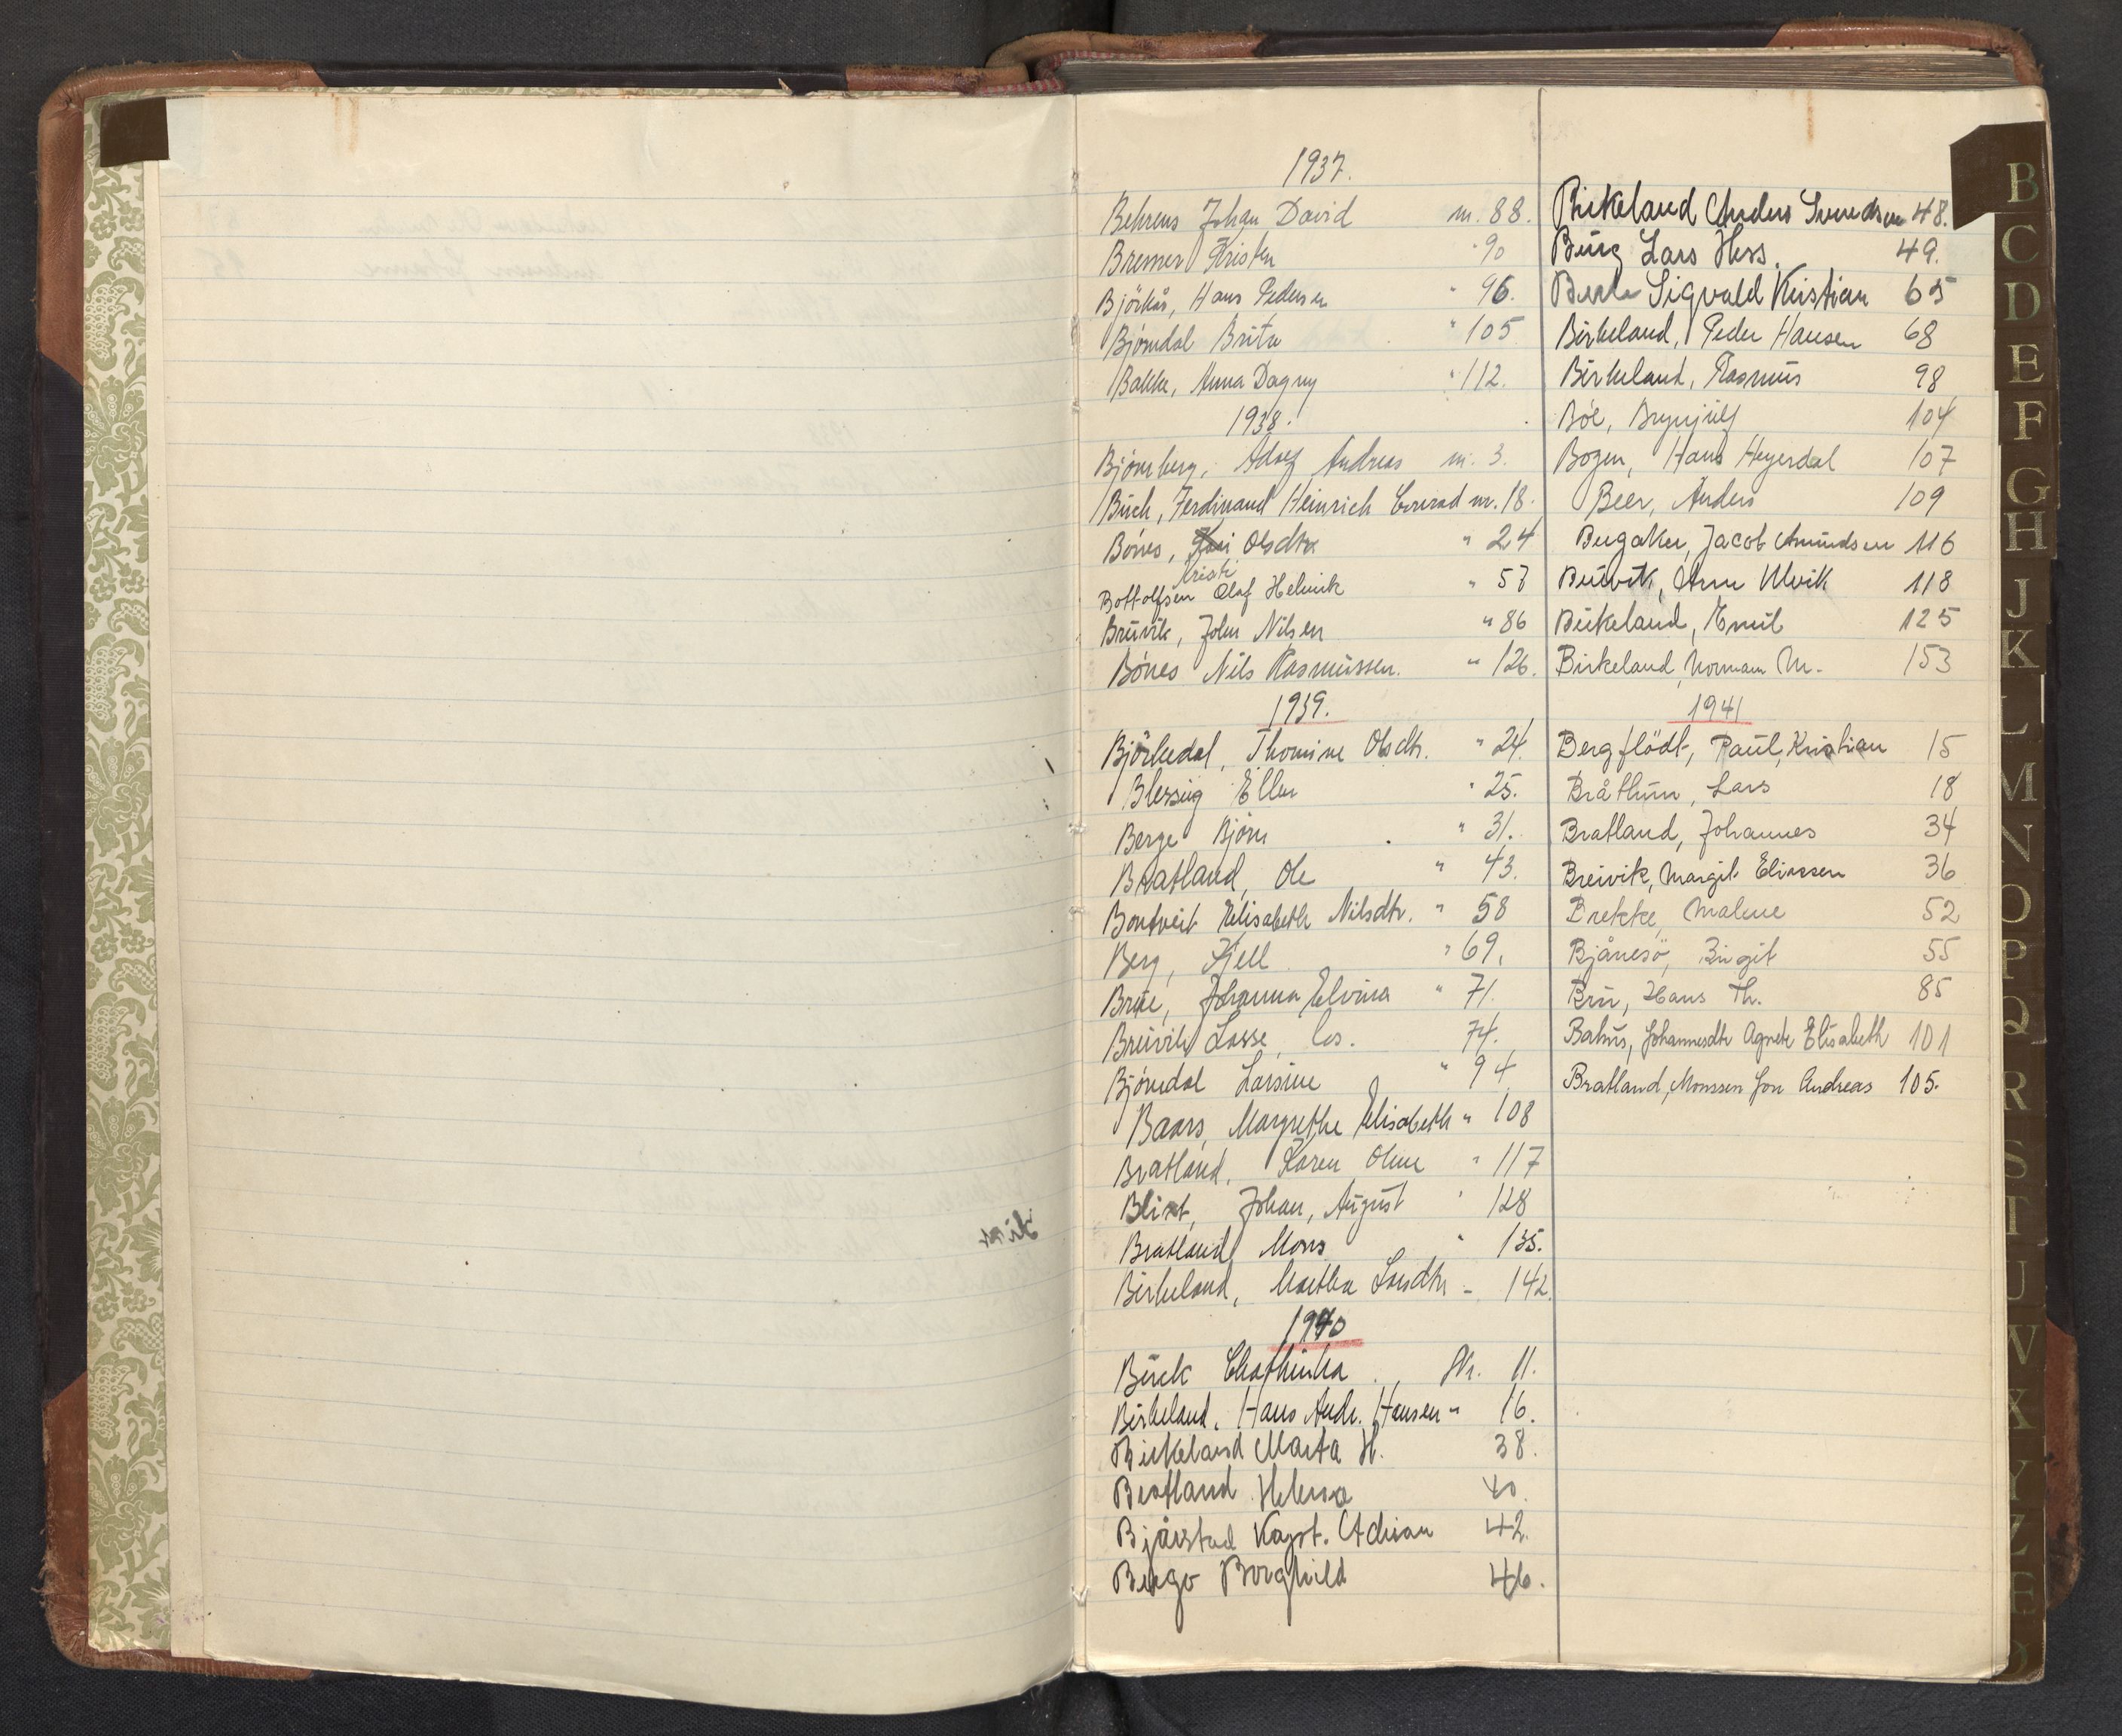 1937.
Behrens Johan David nr. 88.
Bremer Kristen " 90
Björkås, Hans Pedersen " 96.
Bjørndal Brita " 105
Bakke, Anna Dagny " 112.
1938.
Bjørnberg, Adolf Andreas nr. 3.
Büch, Ferdinand Heinrich Conrad nr. 18.
Bønes, Olsdtr " 24
Kristi
Bottolfsen Olaf Helmik " 57
Bruvik, John Nilsen " 86
Bønes Nils Rasmussen. " 126.
1939.
Björkedal, Thomine Olsdtr. " 24.
Blessing Ellen " 25.
Berge Bjørn " 31.
Bratland, Ole " 43.
Bontveit Elisabeth Nilsdtr. " 58
Berg, Kjell " 69.
Brue, Johanna Elvina " 71.
Breivik Lasse 74.
Bjørndal Larsine " 94
Baars, Margrethe Elisabeth " 108
Bratland, Karen Oline " 117
Blixt, Johan, August " 128
Bratland Mons " 135.
Birkeland, Martha Larsdtr - 142.
1940
Bück Cathinka Nr. 11.
Birkeland, Hans Andr. Hansen " 16.
Birkeland Marta H. 38.
Bratland Helena 40.
Bjårstad Kapt. Adrian 42.
Borghild 46.
Birkeland Anders Svendsen 48.
Lars Hess. 49.
Sigvald Kristian 65
Birkeland, Peder Hansen 68
Birkeland, Rasmus 98
Bøe, Brynjulf 104
Bogen, Hans Heyerdal 107
Beer, Anders 109
Jacob Amundsen 116
Bruvik, Arne Ulvik 118
Birkeland, Emil 125
Birkeland, Norman M. 153
1941
Bergflödt, Paul, Kristian 15
Bråthun, Lars 18
Bratland, Johannes 34
Breivik, Margit Eliassen 36
Brekke, Malene 52
Bjånesö, Birgit 55
Bru, Hans Th. 85
Bahus, Johannesdtr Agnete Elisabeth 101
Bratland, Monssen Jon Andreas 105.
B
C
D
E
F
G
H
J
K
L
M
N
O
P
Q
R
S
T
U
V
X
Y
Z
Æ
Ø